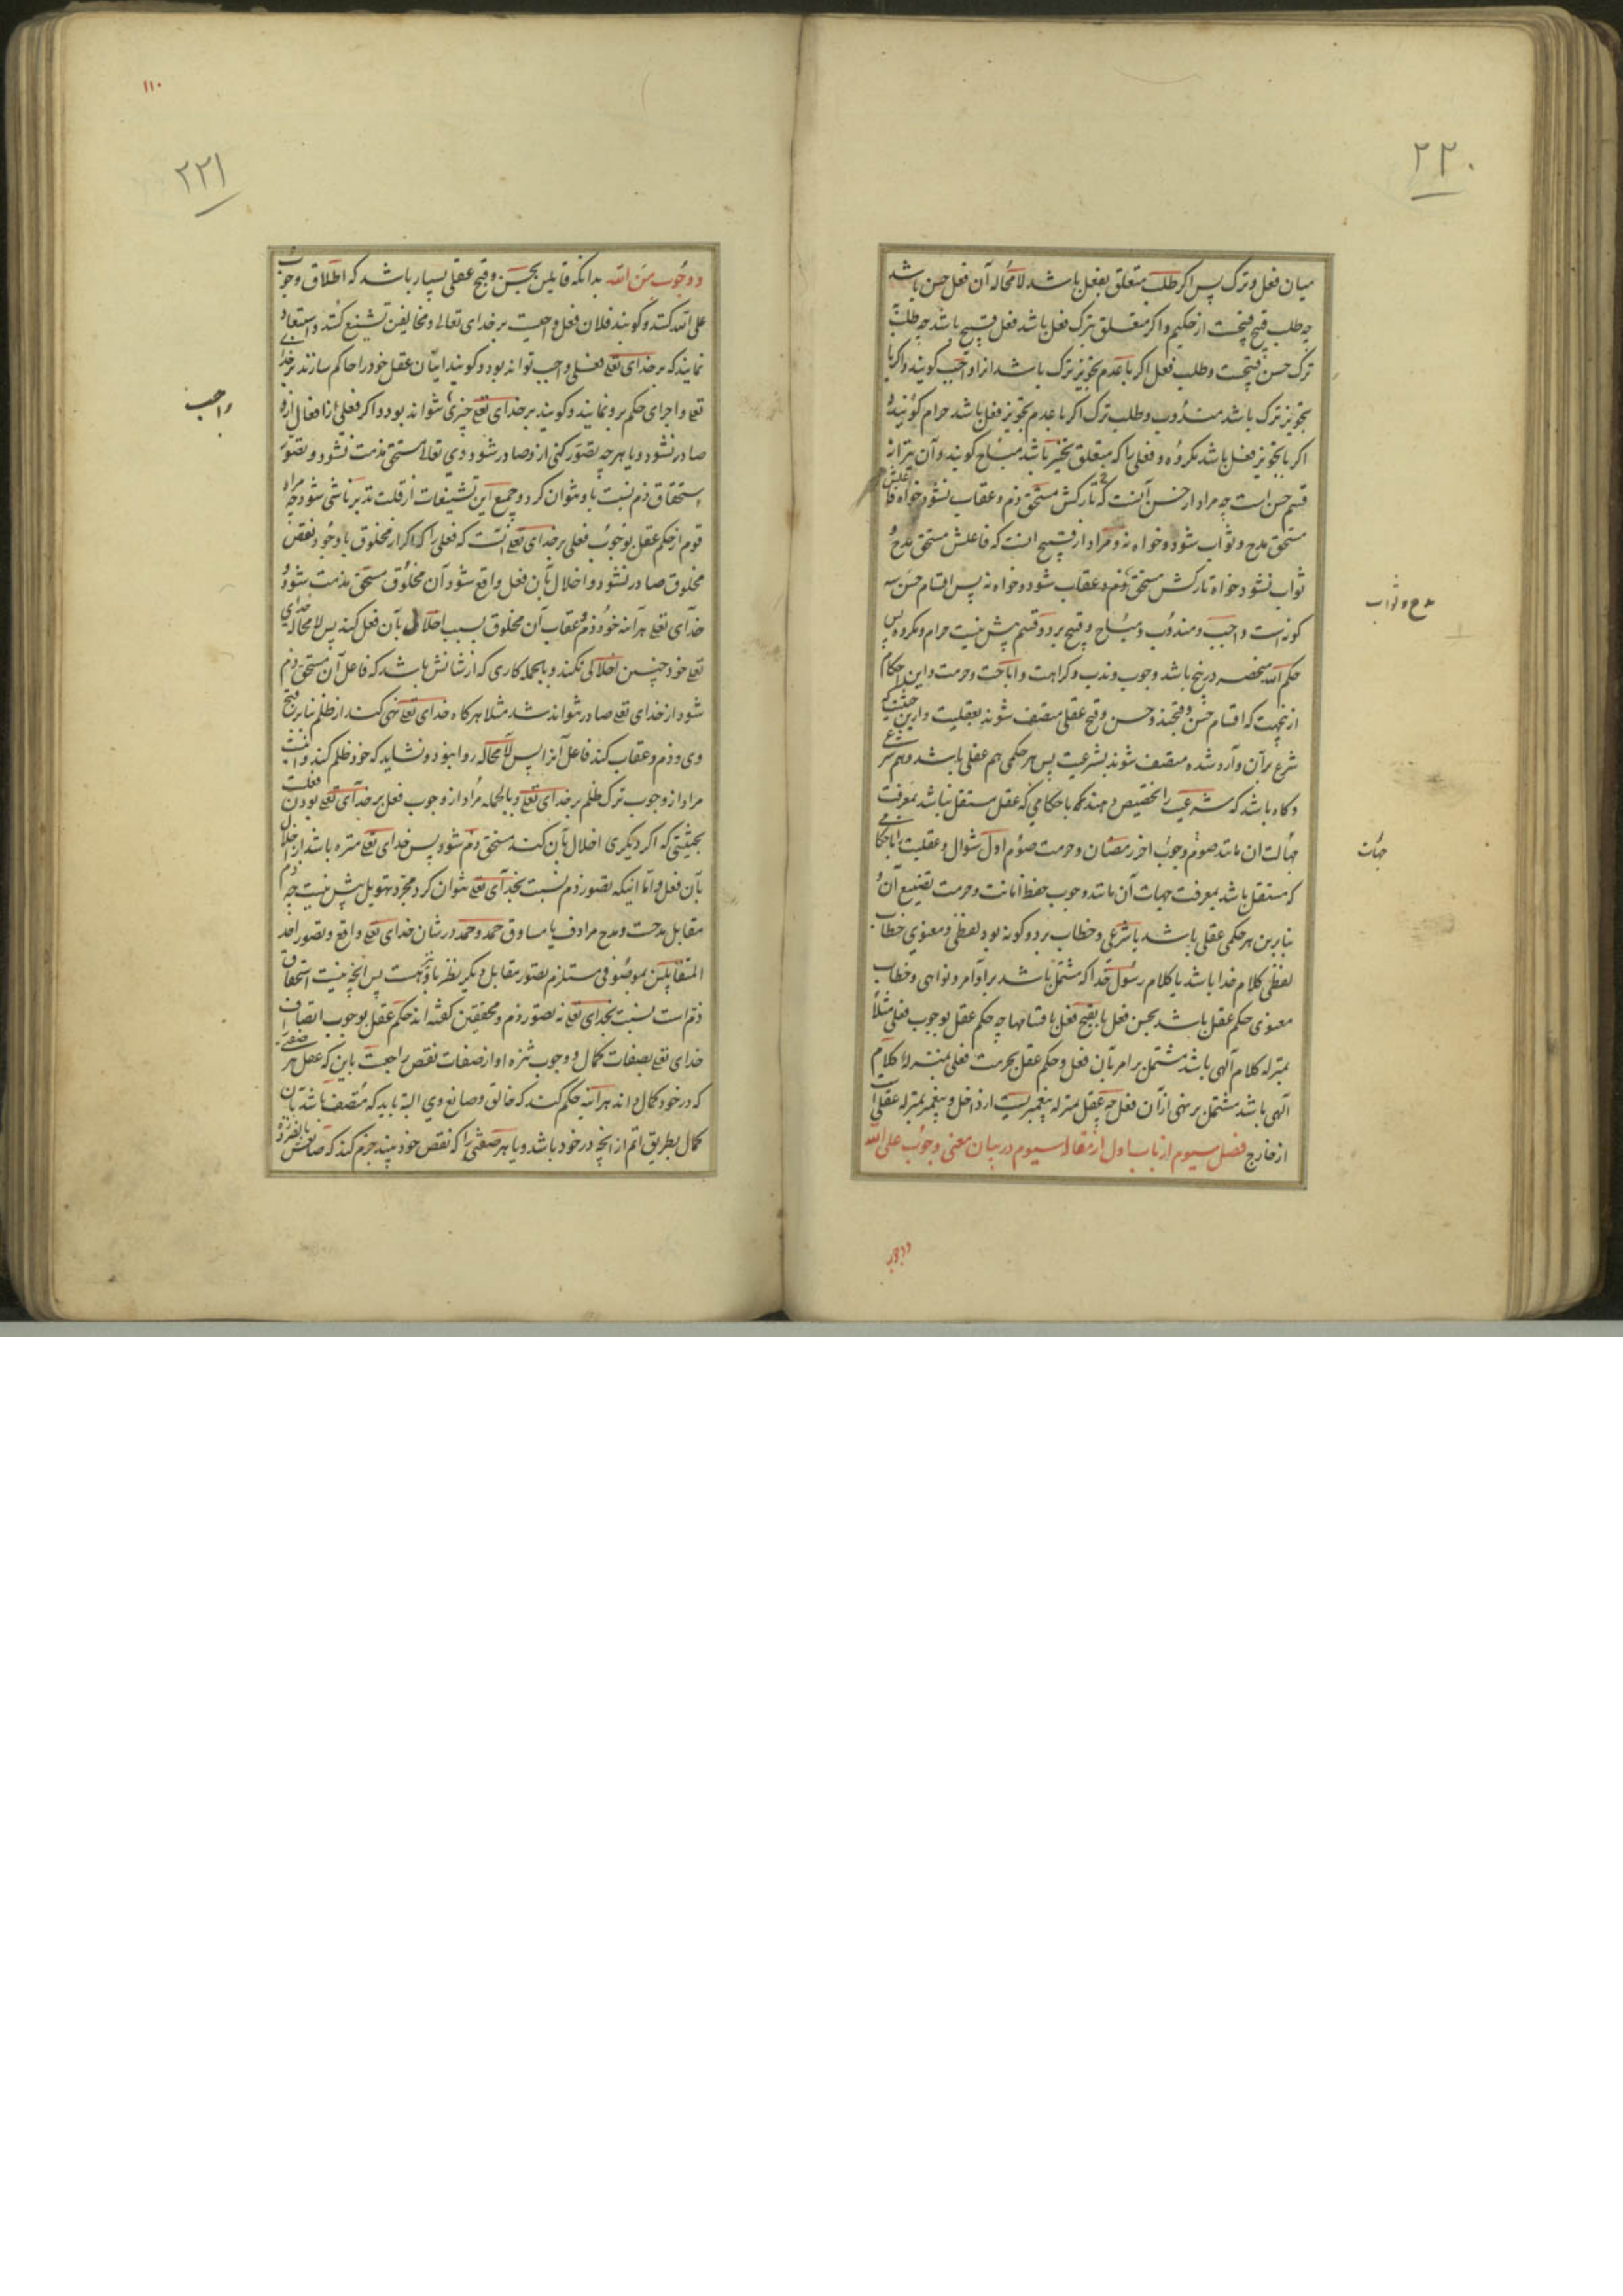 ۲۲۰
میان فعل و ترک پس اگر طلب متعلق بفعل باشد لامحاله آن فعل حسن باشد
چه طلب قبیح قبیحست از حکیم و اگر متعلق بترک فعل باشد فعل قبیح باشد چه طلب
ترک حسن قبیحست و طلب فعل اگر با عدم تجویز ترک باشد انرا واجب گویند و اگر با
تجویز ترک باشد مندوب و طلب ترک اگر با عدم تجویز فعل باشد حرام گویند و
اگر با تجویز فعل باشد مکروه و فعلی را که متعلق تخییر باشد مباح گویند و آن نیز از
قسم حسن است چه مراد از حسن آنست که تارکش مستحق ذم و عقاب نشود خواه فاعلش
مستحق مدح و ثواب شود و خواه نه و مراد از قبیح انست که فاعلش مستحق مدح و
ثواب نشود خواه تارکش مستحق ذم و عقاب شود و خواه نه پس اقسام حسن سه
گونه است واجب و مندوب و مباح و قبیح بر دو قسم بیش نیست حرام و مکروه پس
حکم الله منحصر در پنج باشد وجوب و ندب و کراهت و اباحت و حرمت و این احکام
از این جهت که اقسام حسن و قبحند و حسن و قبح عقلی متصف شوند بعقلیت و از این حیثیت که
شرع بر آن وارد شده متصف شوند بشرعیت پس هر حکمی هم عقلی باشد و هم شرعی
و گاه باشد که شرعیت را تخصیص دهند باحکامی که عقل مستقل نباشد بمعرفت
جهالت ان مانند صوم وجوب اخر رمضان و حرمت صوم اول شوال و عقلیت را باحکامی
که مستقل باشد بمعرفت جهات آن مانند وجوب حفظ امانت و حرمت تضییع آن و
بنابرین هر حکمی عقلی باشد یا شرعی و خطاب بر دو گونه بود لفظی و معنوی خطاب
لفظی کلام خدا باشد یا کلام رسول خدا که مشتمل باشد بر اوامر و نواهی و خطاب
معنوی حکم عقل باشد بحسن فعل یا بقبح فعل باقسامها چه حکم عقل بوجوب فعلی مثلاً
بمنزله کلام آلهی باشد مشتمل بر امر بآن فعل و حکم عقل بحرمت فعلی بمنزله کلام
آلهی باشد مشتمل بر نهی از آن فعل چه عقل بمنزله پیغمبریست از داخل و پیغمبر بمنزله عقلی است
از خارج فصل سیوم از باب اول از مقاله سیوم در بیان معنی وجوب علی الله
مدح و ثواب
جهات
ووجوب
۱۱۰
۲۲۱
و وجوب من الله بدانکه قایلین بحسن و قبح عقلی بسیار باشد که اطلاق وجوب
علی الله کنند و گویند فلان فعل واجبست بر خدای تعالی و مخالفین تشنیع کنند و استبعاد
نمایند که بر خدای تعلی فعلی واجب تواند بود و گویند اینان عقل خود را حاکم سازند بر خدای
تعلی و اجرای حکم بر او نمایند و گویند بر خدای تعلی چیزی نتواند بود و اگر فعلی از افعال ازو
صادر نشود و یا هر چه تصور کنی ازو صادر شود وی تعالا مستحق مذمت نشود و تصور
استحقاق ذم نسبت باو نتوان کرد و جمیع این تشنیعات از قلت تدبر ناشی شود چه مراد
قوم از حکم عقل بوجوب فعلی بر خدای تعلی انست که فعلی را که اگر از مخلوق با وجود نقص
مخلوق صادر نشود و اخلال بآن فعل واقع شود آن مخلوق مستحق مذمت شود و
خدآی تعلی هرآینه خود ذم و عقاب آن مخلوق بسبب اخلال بآن فعل کند پس لامحاله خدای
تعلی خود چنین اخلالی نکند و بالجمله کاری که از شانش باشد که فاعل آن مستحق ذم
شود از خدای تعلی صادر نتواند شد مثلا هرگاه خدای تعلی نهی کند از ظلم بنابر قبح
وی و ذم و عقاب کند فاعل آنرا پس لامحاله روا نبود و نشاید که خود ظلم کند و اینست
مراد از وجوب ترک ظلم بر خدای تعلی و بالجمله مراد از وجوب فعل بر خدآی تعلی بودن فعلست
بحیثیتی که اگر دیگری اخلال بآن کند مستحق ذم شود پس خدای تعلی منزه باشد از اخلال
بآن فعل و اما اینکه تصور ذم نسبت بخدآی تعلی نتوان کرد مجرد تهویل بیش نیست چه ذم
مقابل مدحست و مدح مرادف یا مساوق حمد و حمد در شان خدای تعلی واقع و تصور احد
المتقابلین بموصوفی مستلزم تصور مقابل دیگر نظر باو نیز هست پس آنچه نیست استحقاق
ذم است نسبت بخدای تعلی نه تصور ذم و محققین گفته اند حکم عقل بوجوب اتصاف
خدای تعلی بصفات کمال و وجوب تنزه او از صفات نقص راجعست باین که عقل هر صفتی را
که در خود کمال داند هرآینه حکم کند که خالق و صانع وی البته باید که متصف باشد بآن
کمال بطریق اتم از انچه در خود باشد و یا هر صفتی را که نقص خود بیند جزم کند که صانعش
واجب